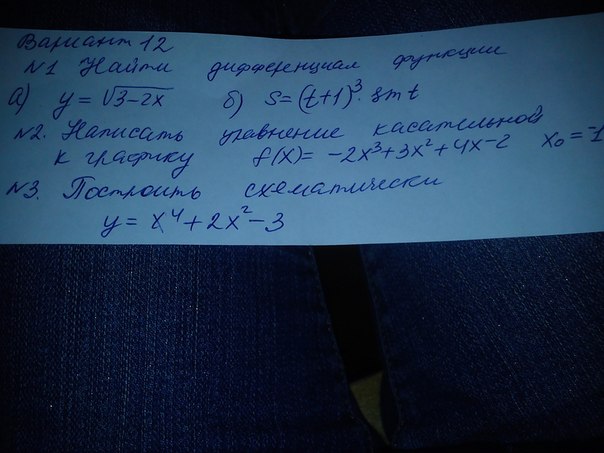 Вариант 12
№1 Найти дифференциал функции
а) y = √3-2x б) s = (t+1)³·sin t
№2. Написать уравнение касательной
к графику f(x) = -2x³+3x²+4x-2 x₀ = -1
№3. Построить схематически
y = x⁴+2x²-3